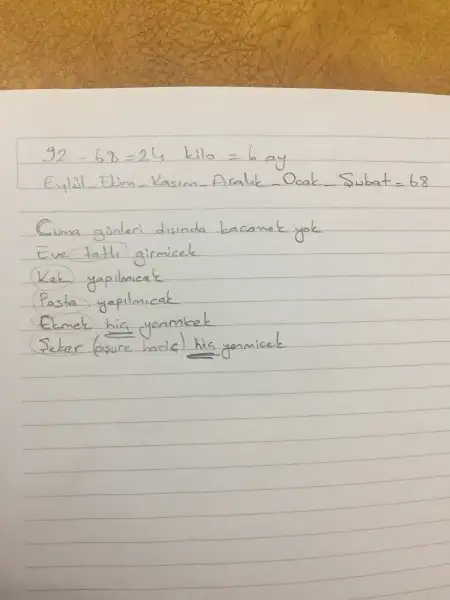 92 - 68 = 24 kilo = 6 ay
Eylül - Ekim - Kasım - Aralık - Ocak - Şubat = 68
Cuma günleri dışında kaçamak yok
Eve tatlı girmicek
Kek yapılmıcak
Pasta yapılmıcak
Ekmek hiç yenmicek
Şeker (aşure hariç) hiç yenmicek